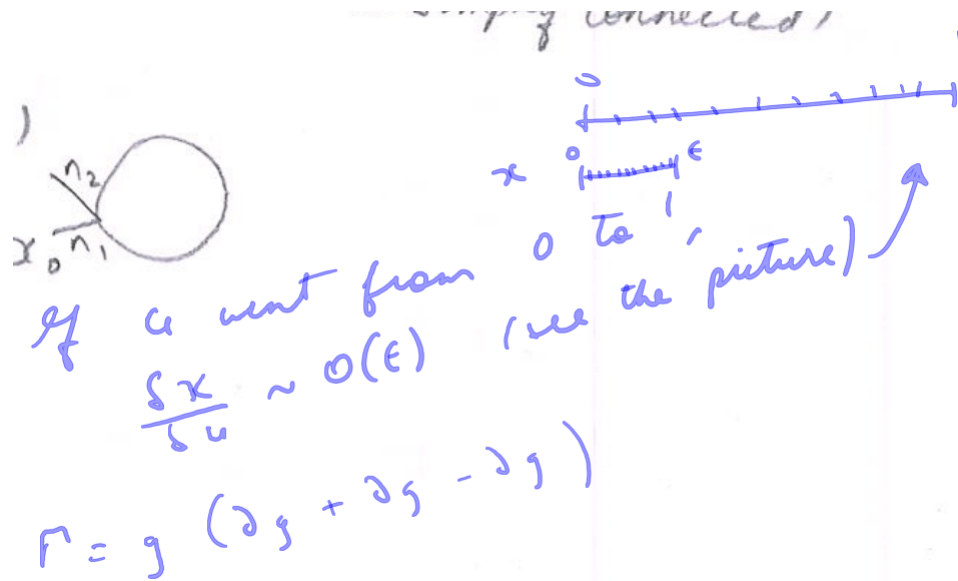 simply connected)
)
n₂
x₀ n₁
0
x 0 ε
If u went from 0 to 1,
δx/δu ~ O(ε) (see the picture)
Γ = g (∂g + ∂g - ∂g)